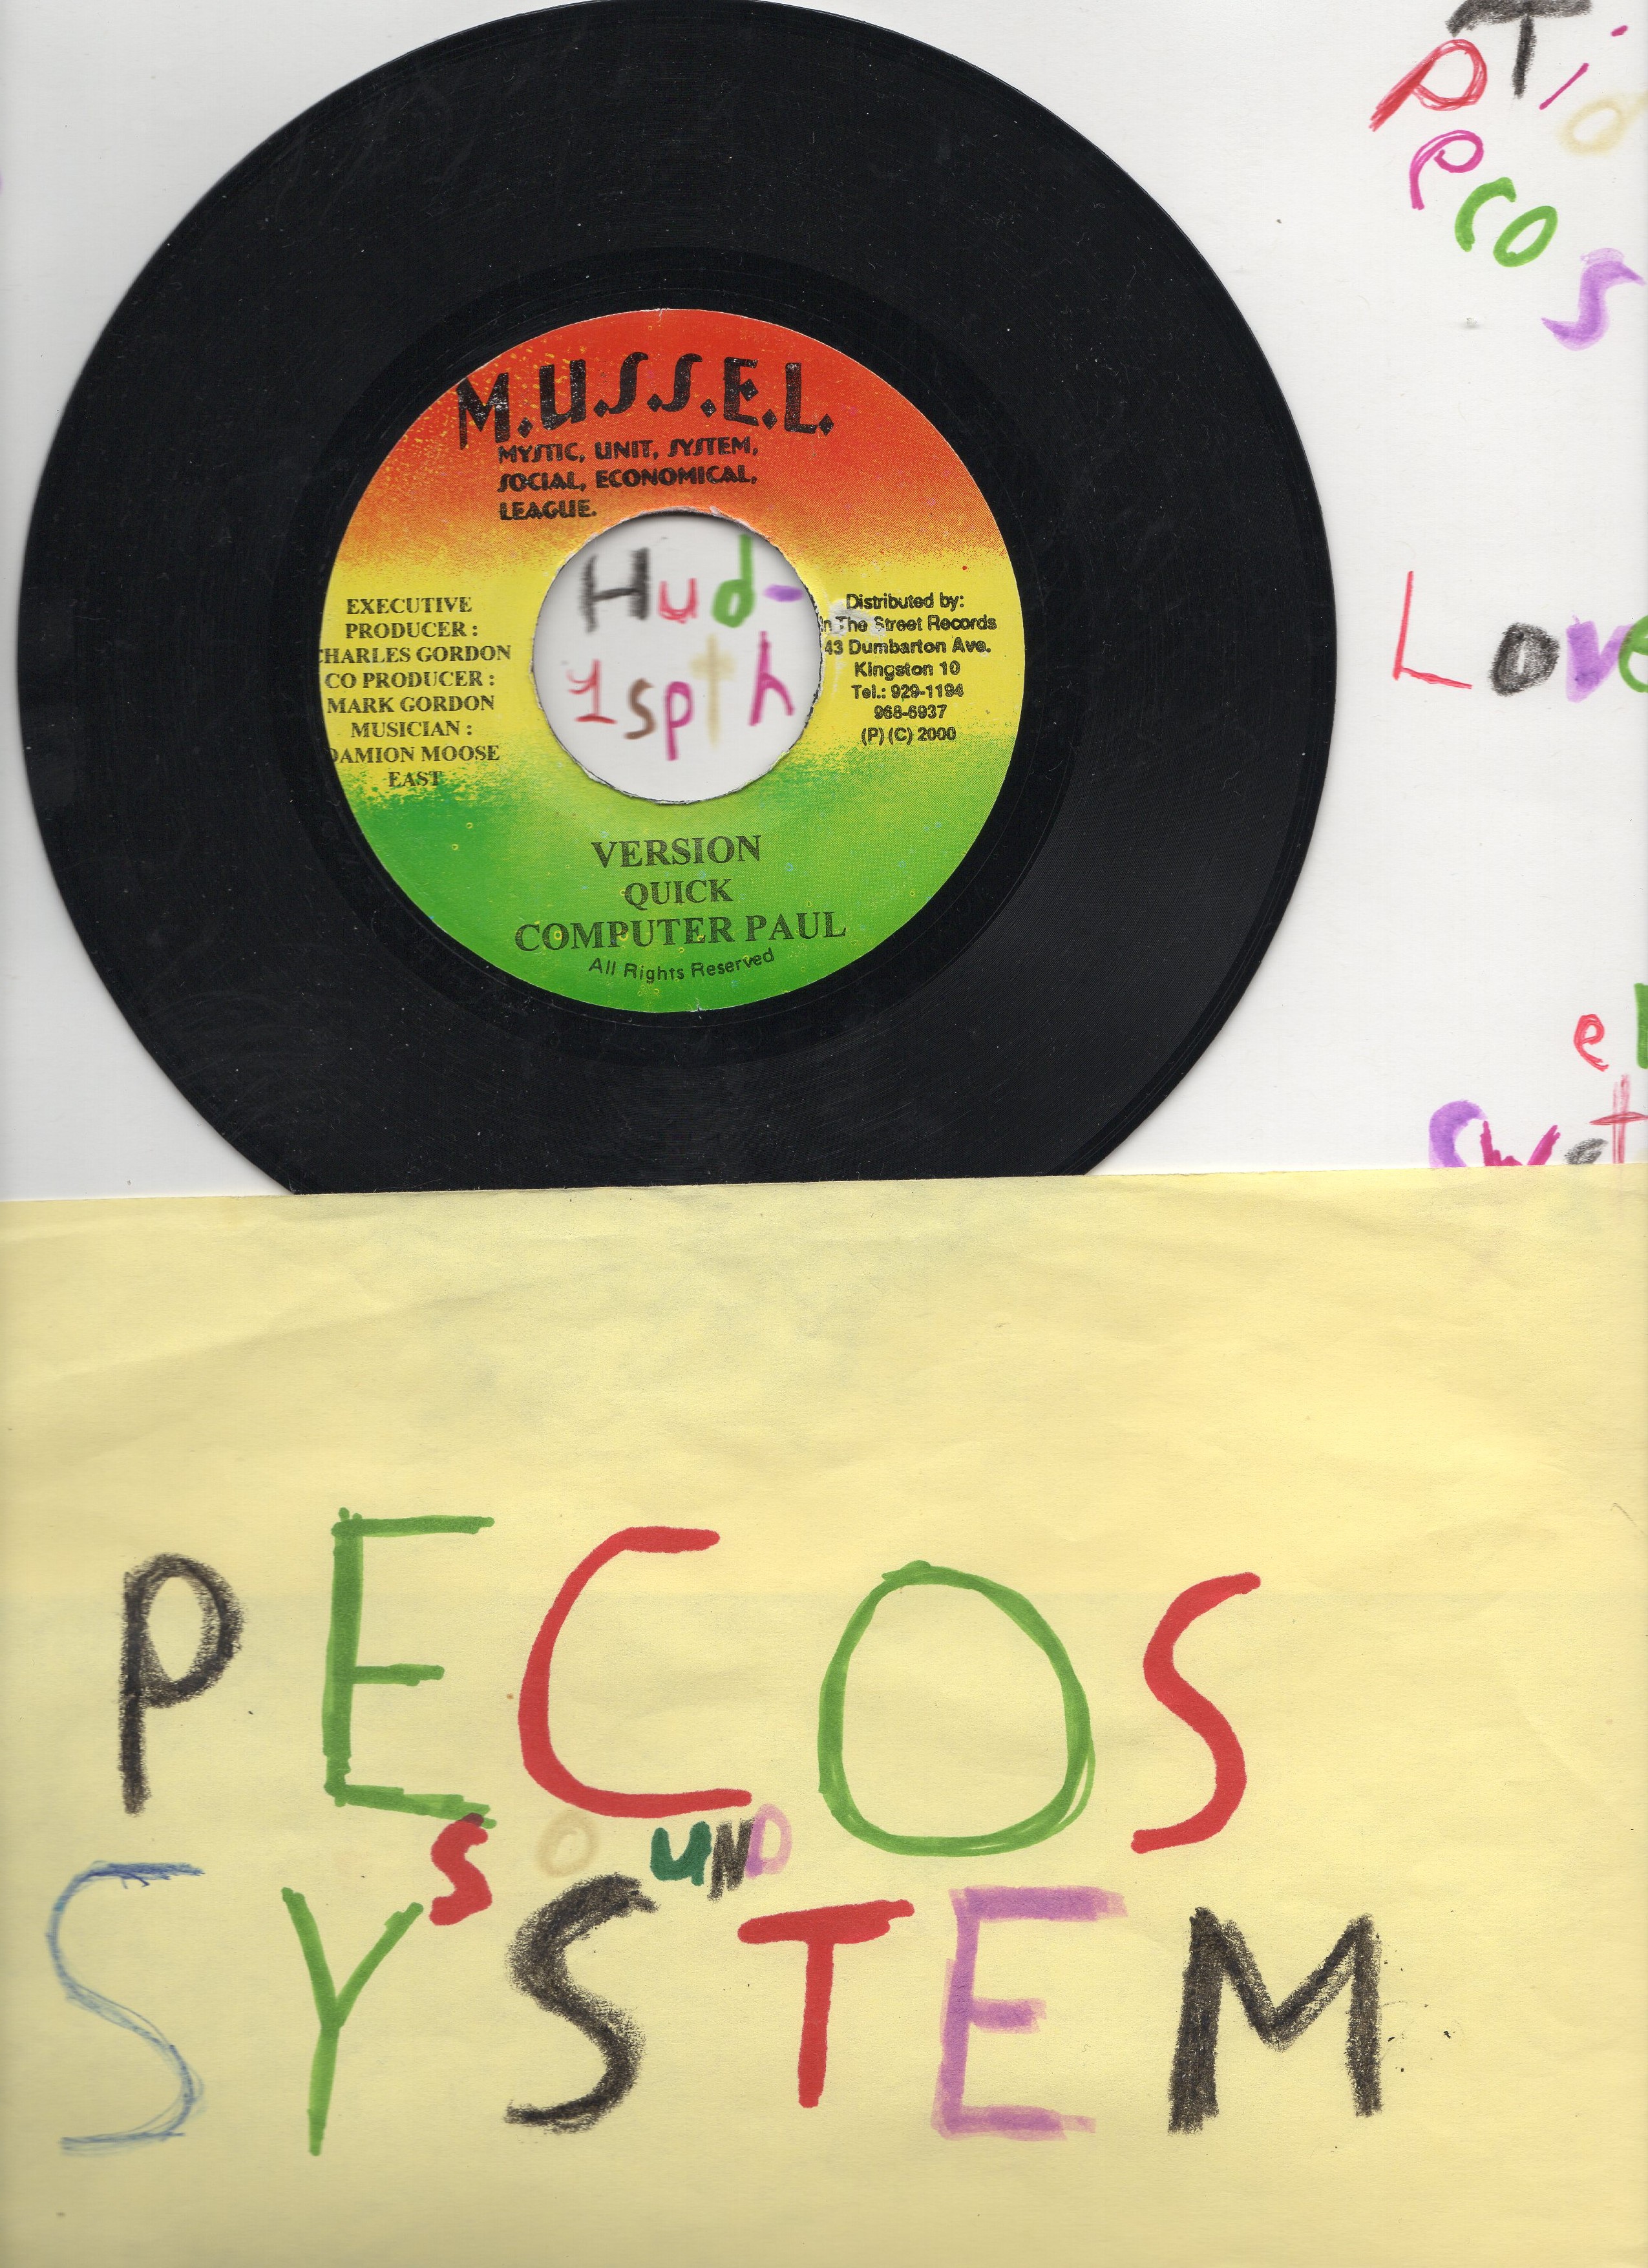 M.U.S.S.E.L.
MYSTIC, UNIT, SYSTEM,
SOCIAL, ECONOMICAL,
LEAGUE.
EXECUTIVE
PRODUCER :
CHARLES GORDON
CO PRODUCER :
MARK GORDON
MUSICIAN :
DAMION MOOSE
EAST
Hud-
1spth
Distributed by:
In The Street Records
43 Dumbarton Ave.
Kingston 10
Tel.: 929-1194
968-6937
(P) (C) 2000
VERSION
QUICK
COMPUTER PAUL
All Rights Reserved
Pecos
Love
PECOS
SOUND
SYSTEM